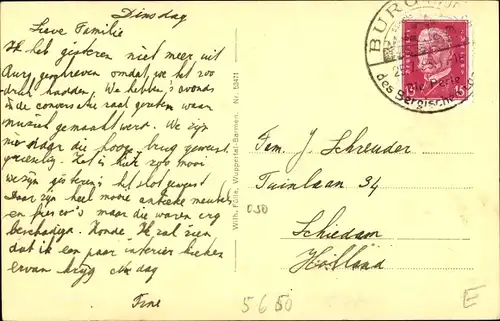 Dinsdag
Lieve Familie
Ik heb gisteren niet meer uit
Burg geschreven omdat we het zoo
druk hadden. We hebben 's avonds
in de conversatie zaal gezeten waar
muziek gemaakt werd. We zijn
naar die hooge brug geweest
Het is hier zoo mooi
we zijn gisteren 's het slot geweest
Daar zijn heel mooie antieke meubels
en fresco's maar die waren erg
beschadigd. Zonde. Ik zal zien
dat ik een paar interieur kieken
ervan krijg dag
Tine
Wilh. Fülle, Wuppertal-Barmen. Nr. 53471
BURG
Die Perle
des Bergischen
15 15
Fam. J. Schreuder
Tuinlaan 34
Schiedam
Holland
050
5650
E